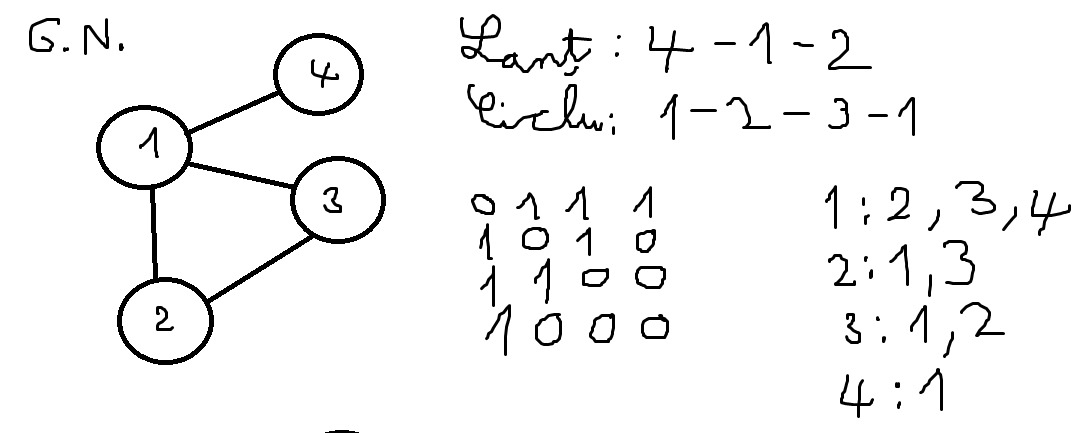 G.N.
Lanț: 4-1-2
Ciclu: 1-2-3-1
4
1
3
2
0 1 1 1
1 0 1 0
1 1 0 0
1 0 0 0
1: 2, 3, 4
2: 1, 3
3: 1, 2
4: 1